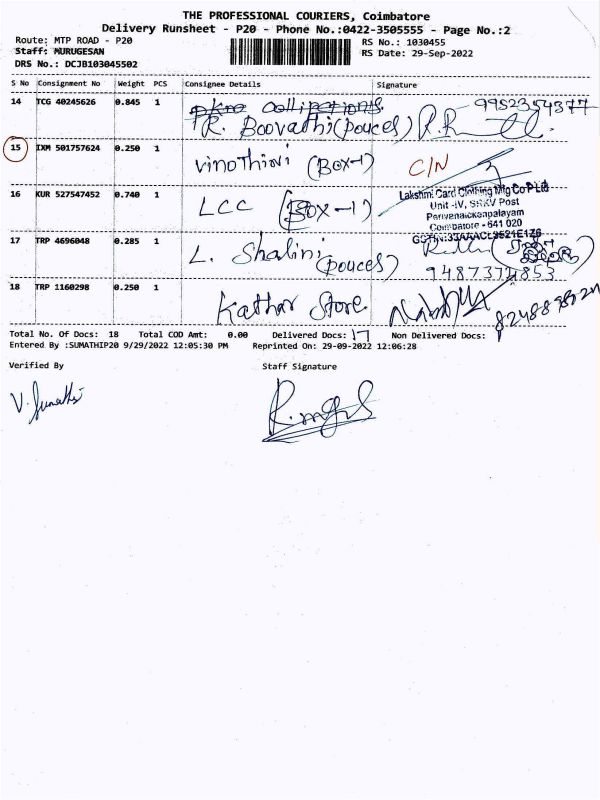 THE PROFESSIONAL COURIERS, Coimbatore
Delivery Runsheet - P20 - Phone No.:0422-3505555 - Page No.:2
Route: MTP ROAD - P20
RS No.: 1030455
Staff: MURUGESAN
RS Date: 29-Sep-2022
DRS No.: DCJB103045502
S No Consignment No Weight PCS Consignee Details Signature
14 TCG 40245626 0.845 1 9952354377
R. Boovathi (pouces)
15 IXM 501757624 0.250 1 vinothini (BOX-1) C/N
16 KUR 527547452 0.740 1 LCC (BOX-1)
Lakshmi Card Clothing Mfg Co P Ltd
Unit -IV, SRKV Post
Perivenaickanpalayam
Coimbatore - 641 020
17 TRP 4696048 0.285 1 L. Shalini (pouces)
9487374853
18 TRP 1160298 0.250 1 Kathar Store
Total No. Of Docs: 18 Total COD Amt: 0.00 Delivered Docs: 17 Non Delivered Docs: 1
Entered By :SUMATHIP20 9/29/2022 12:05:30 PM Reprinted On: 29-09-2022 12:06:28
Verified By Staff Signature
V. Sumathi